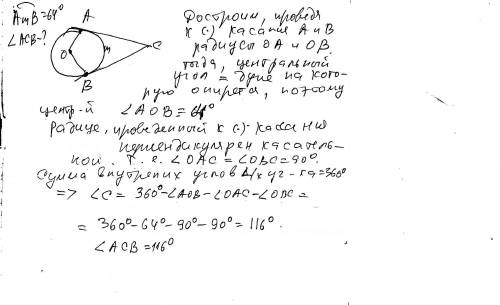 AmB=64° A Достроим, проведя
∠ACB-? к (·) касания А и В
O m C радиусы ОА и ОВ,
B тогда, центральный
угол = дуге на кото-
рую опирается, поэтому
центр-й ∠AOB=64°
Радиус, проведенный к (·)-касания
перпендикулярен касатель-
ной. Т.е. ∠OAC=∠OBC=90°.
Сумма внутренних углов 4/х уг-ка=360°
=> ∠C= 360°-∠AOB-∠OAC-∠OBC=
= 360°-64°-90°-90°=116°.
∠ACB=116°